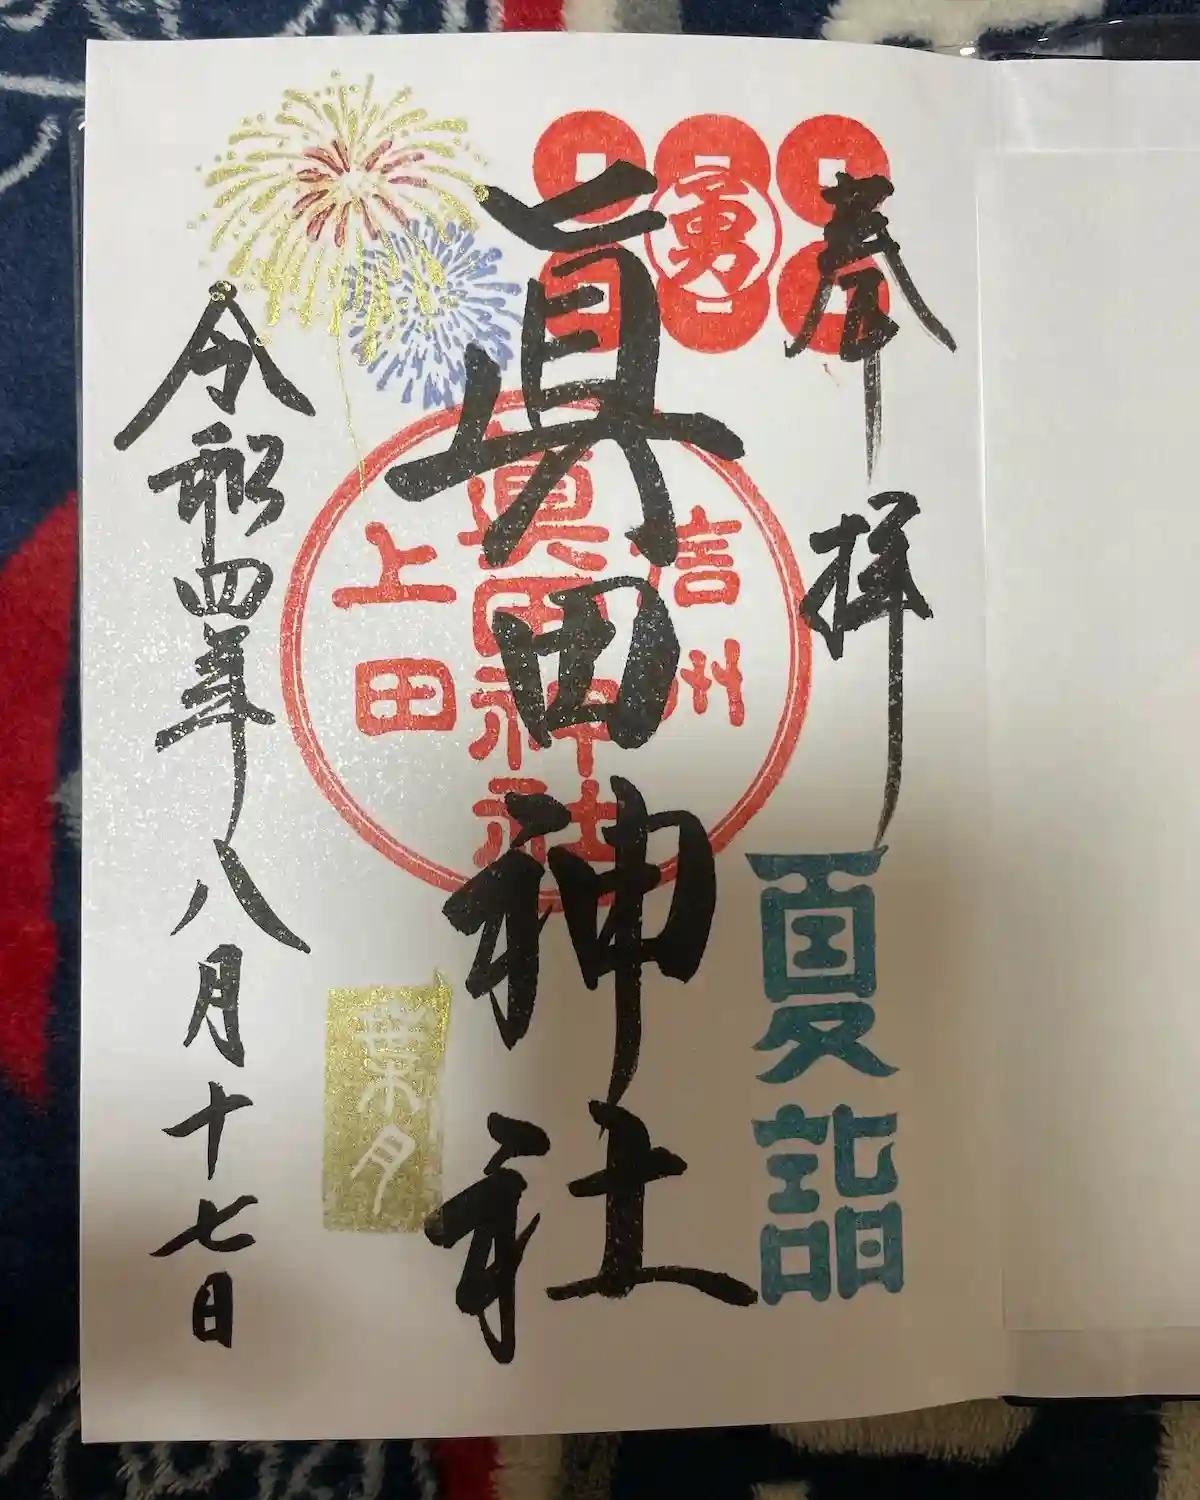 奉拝
夏詣
勇
眞田神社
信州
眞田神社
上田
葉月
令和四年八月十七日